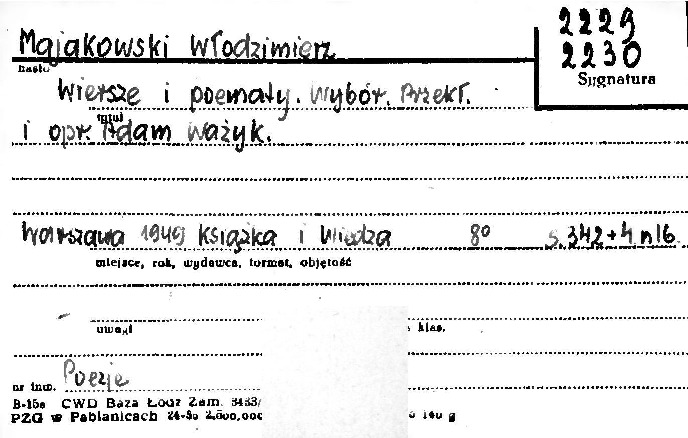 2229
Majakowski Włodzimierz 2230
hasło Sygnatura
Wiersze i poematy. Wybór. Przekł.
tytuł
i opr. Adam Ważyk.
Warszawa 1949 Książka i Wiedza 8° s. 342+4 nlb.
miejsce, rok, wydawca, format, objętość
uwagi klas.
nr inw. Poezje
B-15a CWD Baza Łódź Zam. 3433/
PZG w Pabianicach 24-50 2,500,000 140 g